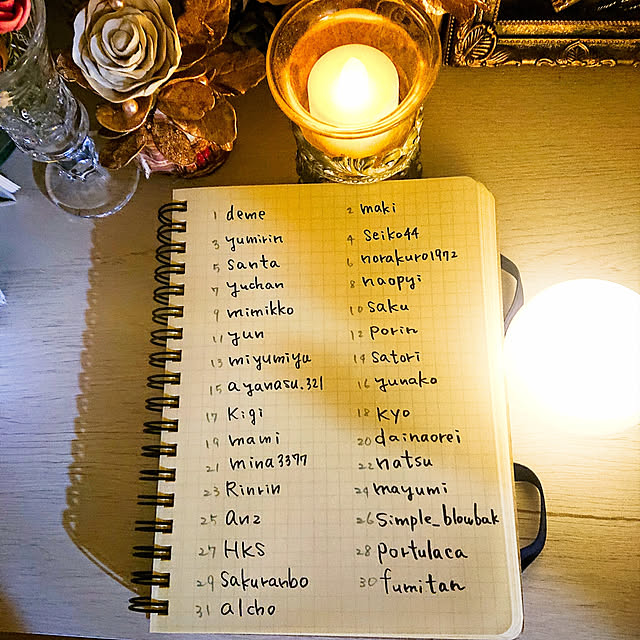 1 deme 2 maki
3 yumirin 4 Seiko44
5 Santa 6 norakuro1972
7 yuchan 8 naopyi
9 mimikko 10 saku
11 yun 12 porin
13 miyumiyu 14 satori
15 ayanasu.321 16 yunako
17 Kigi 18 kyo
19 mami 20 dainaorei
21 mina3377 22 natsu
23 Rinrin 24 mayumi
25 anz 26 simple_blowbak
27 HKS 28 portulaca
29 Sakuranbo 30 fumitan
31 alcho